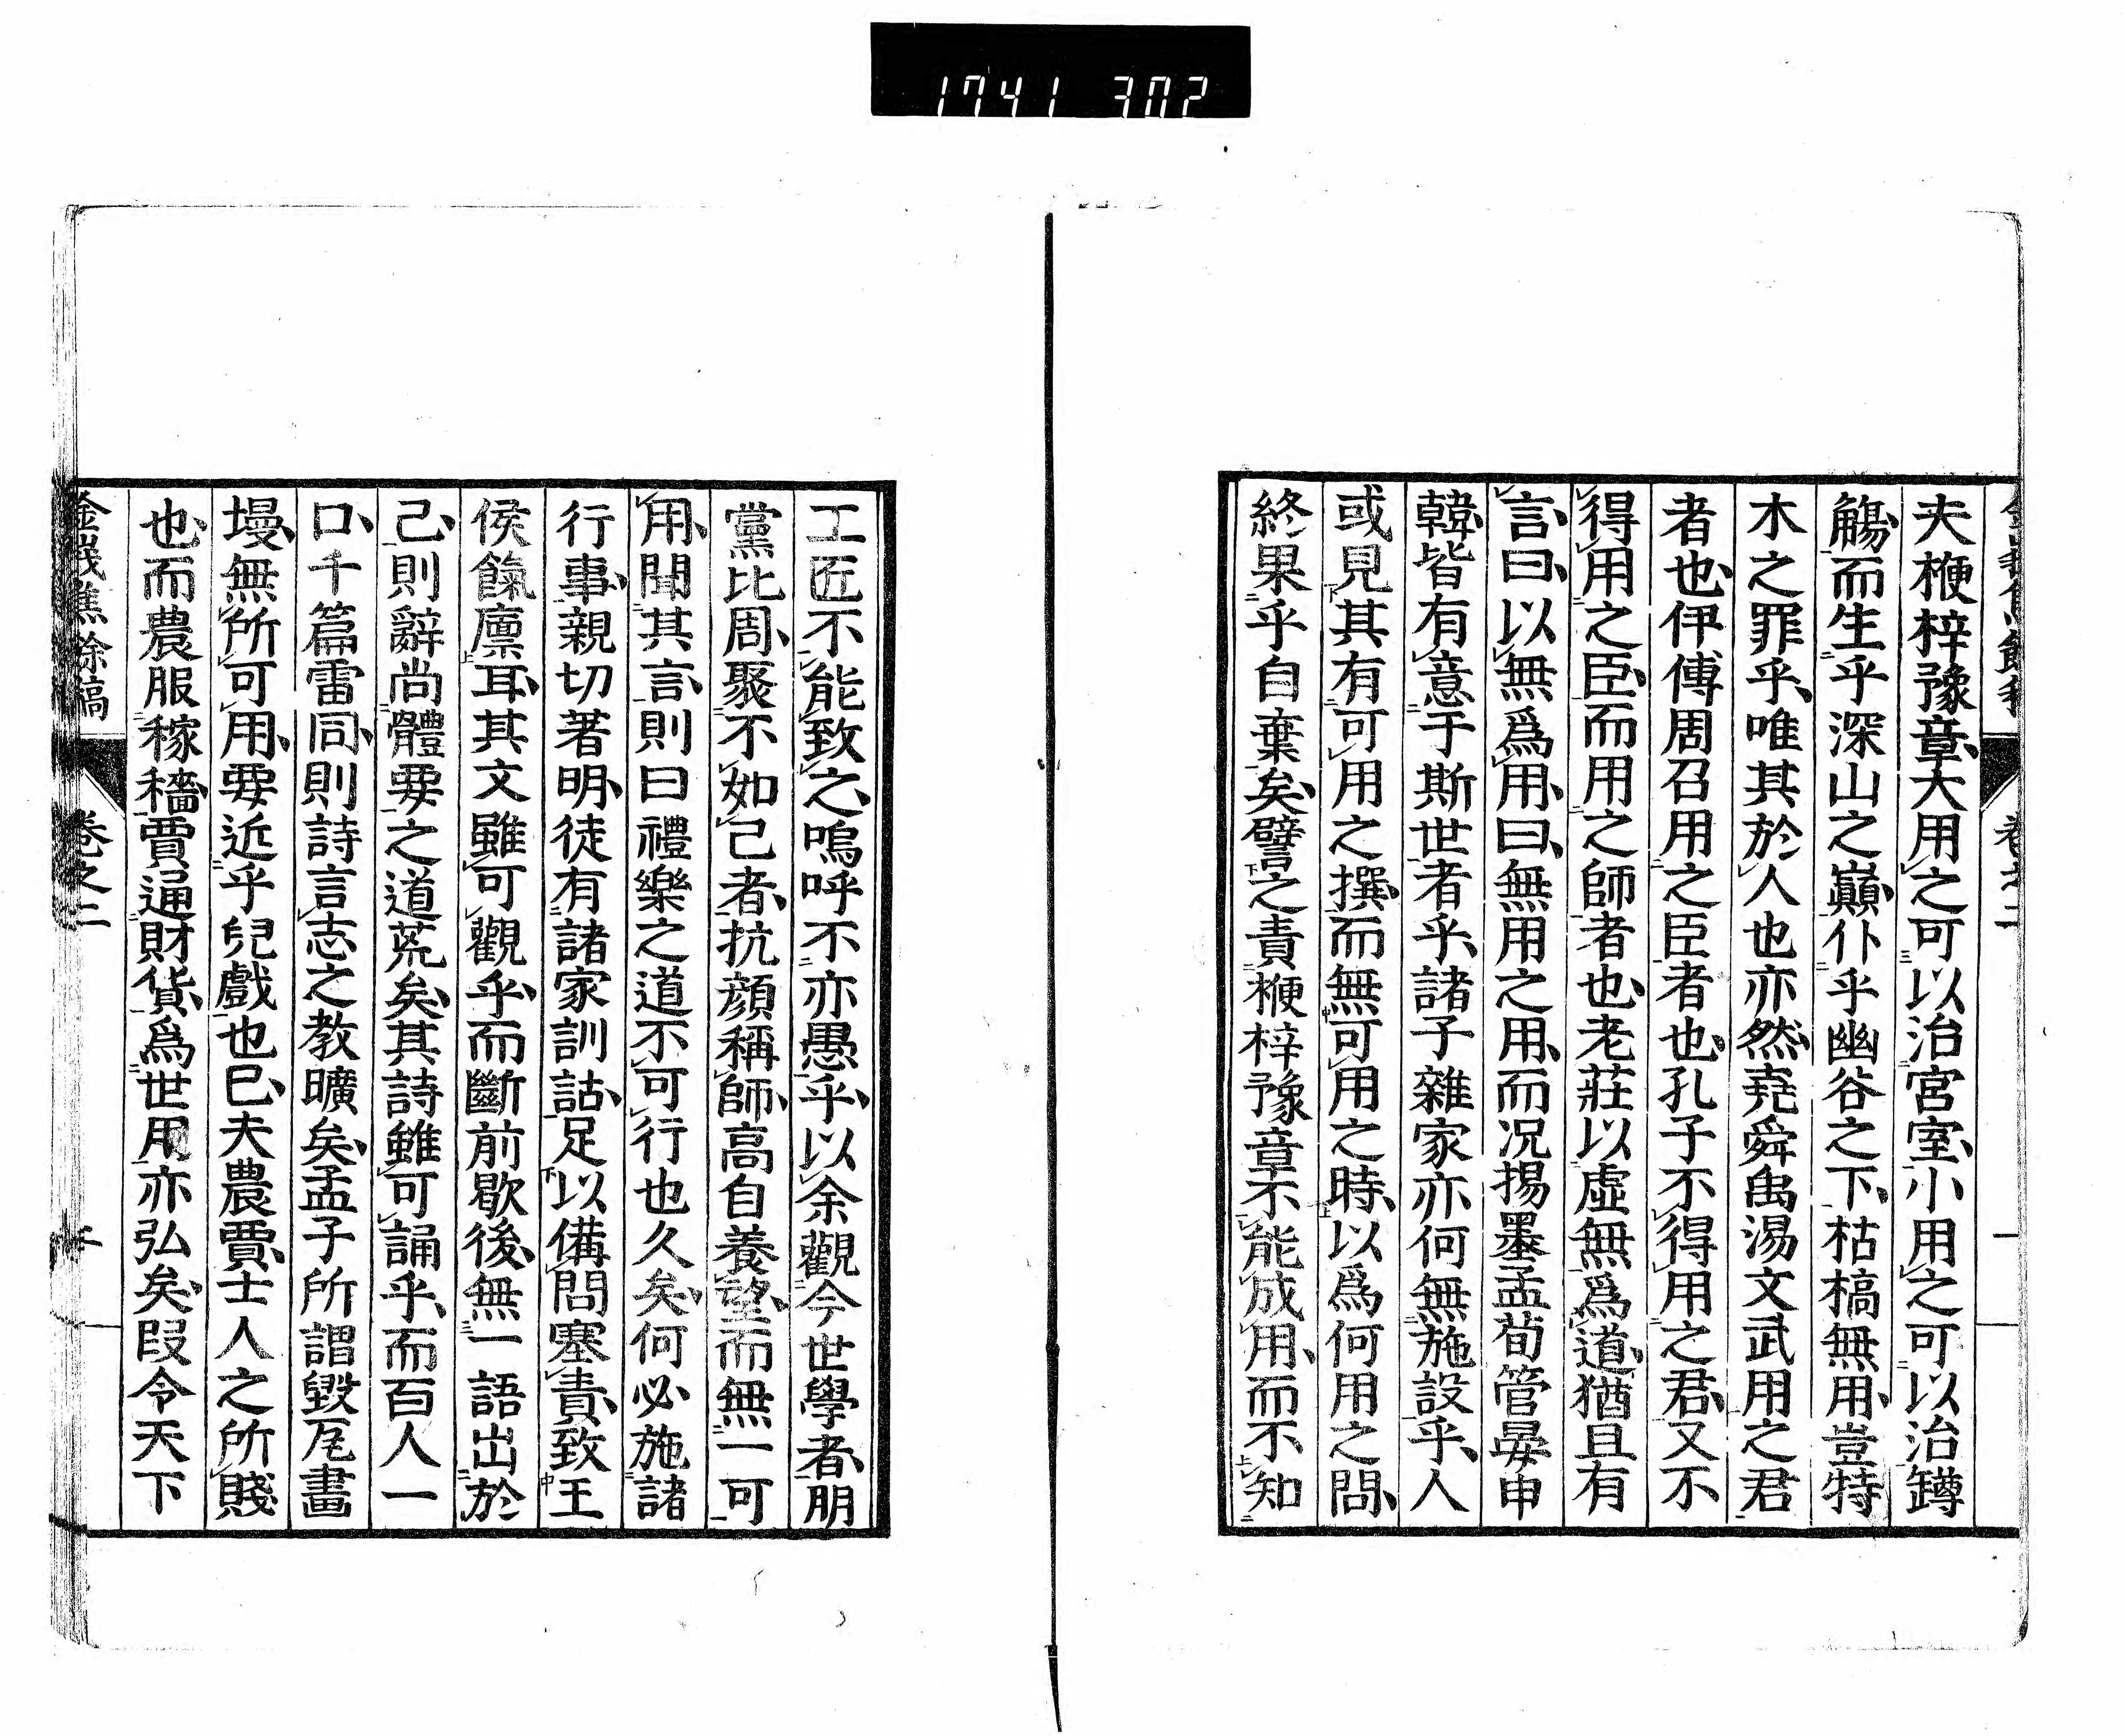 1741 302
夫楩梓豫章、大用之可以治宮室、小用之可以治罇
觴、而生乎深山之巓、仆乎幽谷之下、枯槁無用、豈特
木之罪乎、唯其於人也亦然、堯舜禹湯文武用之君
者也、伊傅周召用之臣者也、孔子不得用之君、又不
得用之臣、而用之師者也、老莊以虛無爲道、猶且有
言、曰、以無爲用、曰、無用之用、而况揚墨孟荀管晏申
韓、皆有意于斯世者乎、諸子雜家亦何無施設乎、人
或見其有可用之撰、而無可用之時、以爲何用之問、
終果乎自棄矣、譬之責楩梓豫章不能成用、而不知
工匠不能致之、嗚呼不亦愚乎、以余觀今世學者、朋
黨比周、聚不如己者、抗顔稱師、高自養望、而無一可
用、聞其言、則曰禮樂之道不可行也久矣、何必施諸
行事、親切著明、徒有諸家訓詁、足以備問塞責、致王
侯餼廪耳、其文雖可觀乎、而斷前歇後、無一語出於
己、則辭尚體要之道荒矣、其詩雖可誦乎、而百人一
口、千篇雷同、則詩言志之教曠矣、孟子所謂毀瓦畫
墁、無所可用、要近乎兒戲也已、夫農賈、士人之所賤
也、而農服稼穡、賈通財貨、爲世用亦弘矣、叚令天下
金峩焦餘稿 卷之二